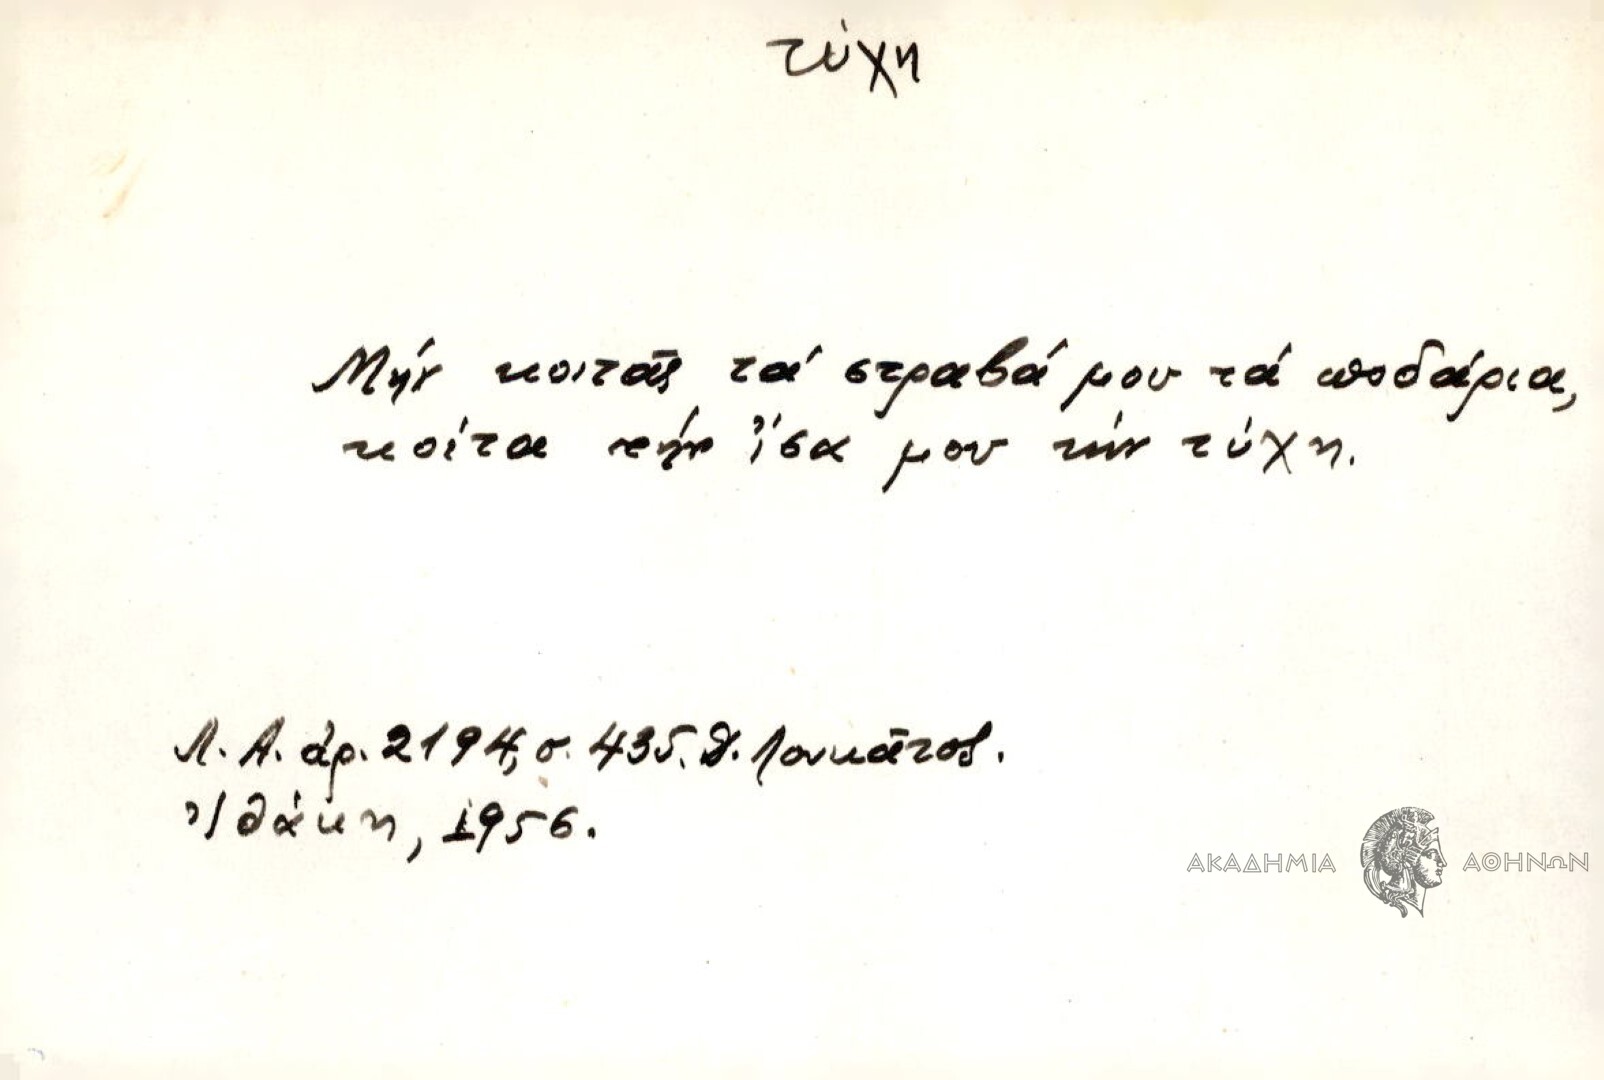 τύχη
Μήν κοιτᾶς τά στραβά μου τά ποδάρια,
κοίτα τήν ἴσα μου τήν τύχη.
Λ. Α. ἀρ. 2194, σ. 435. Δ. Λουκᾶτος.
Ἰθάκη, 1956.
ΑΚΑΔΗΜΙΑ ΑΘΗΝΩΝ